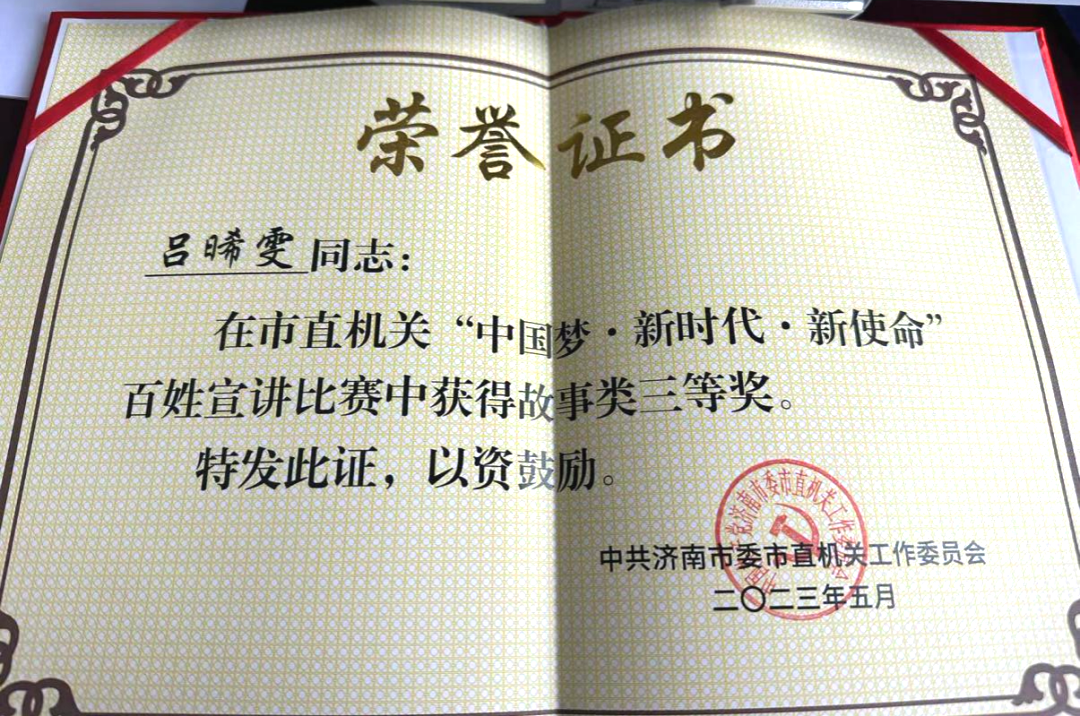 荣誉证书
吕晞雯同志：
在市直机关“中国梦·新时代·新使命”
百姓宣讲比赛中获得故事类三等奖。
特发此证，以资鼓励。
中共济南市委市直机关工作委员会
二〇二三年五月